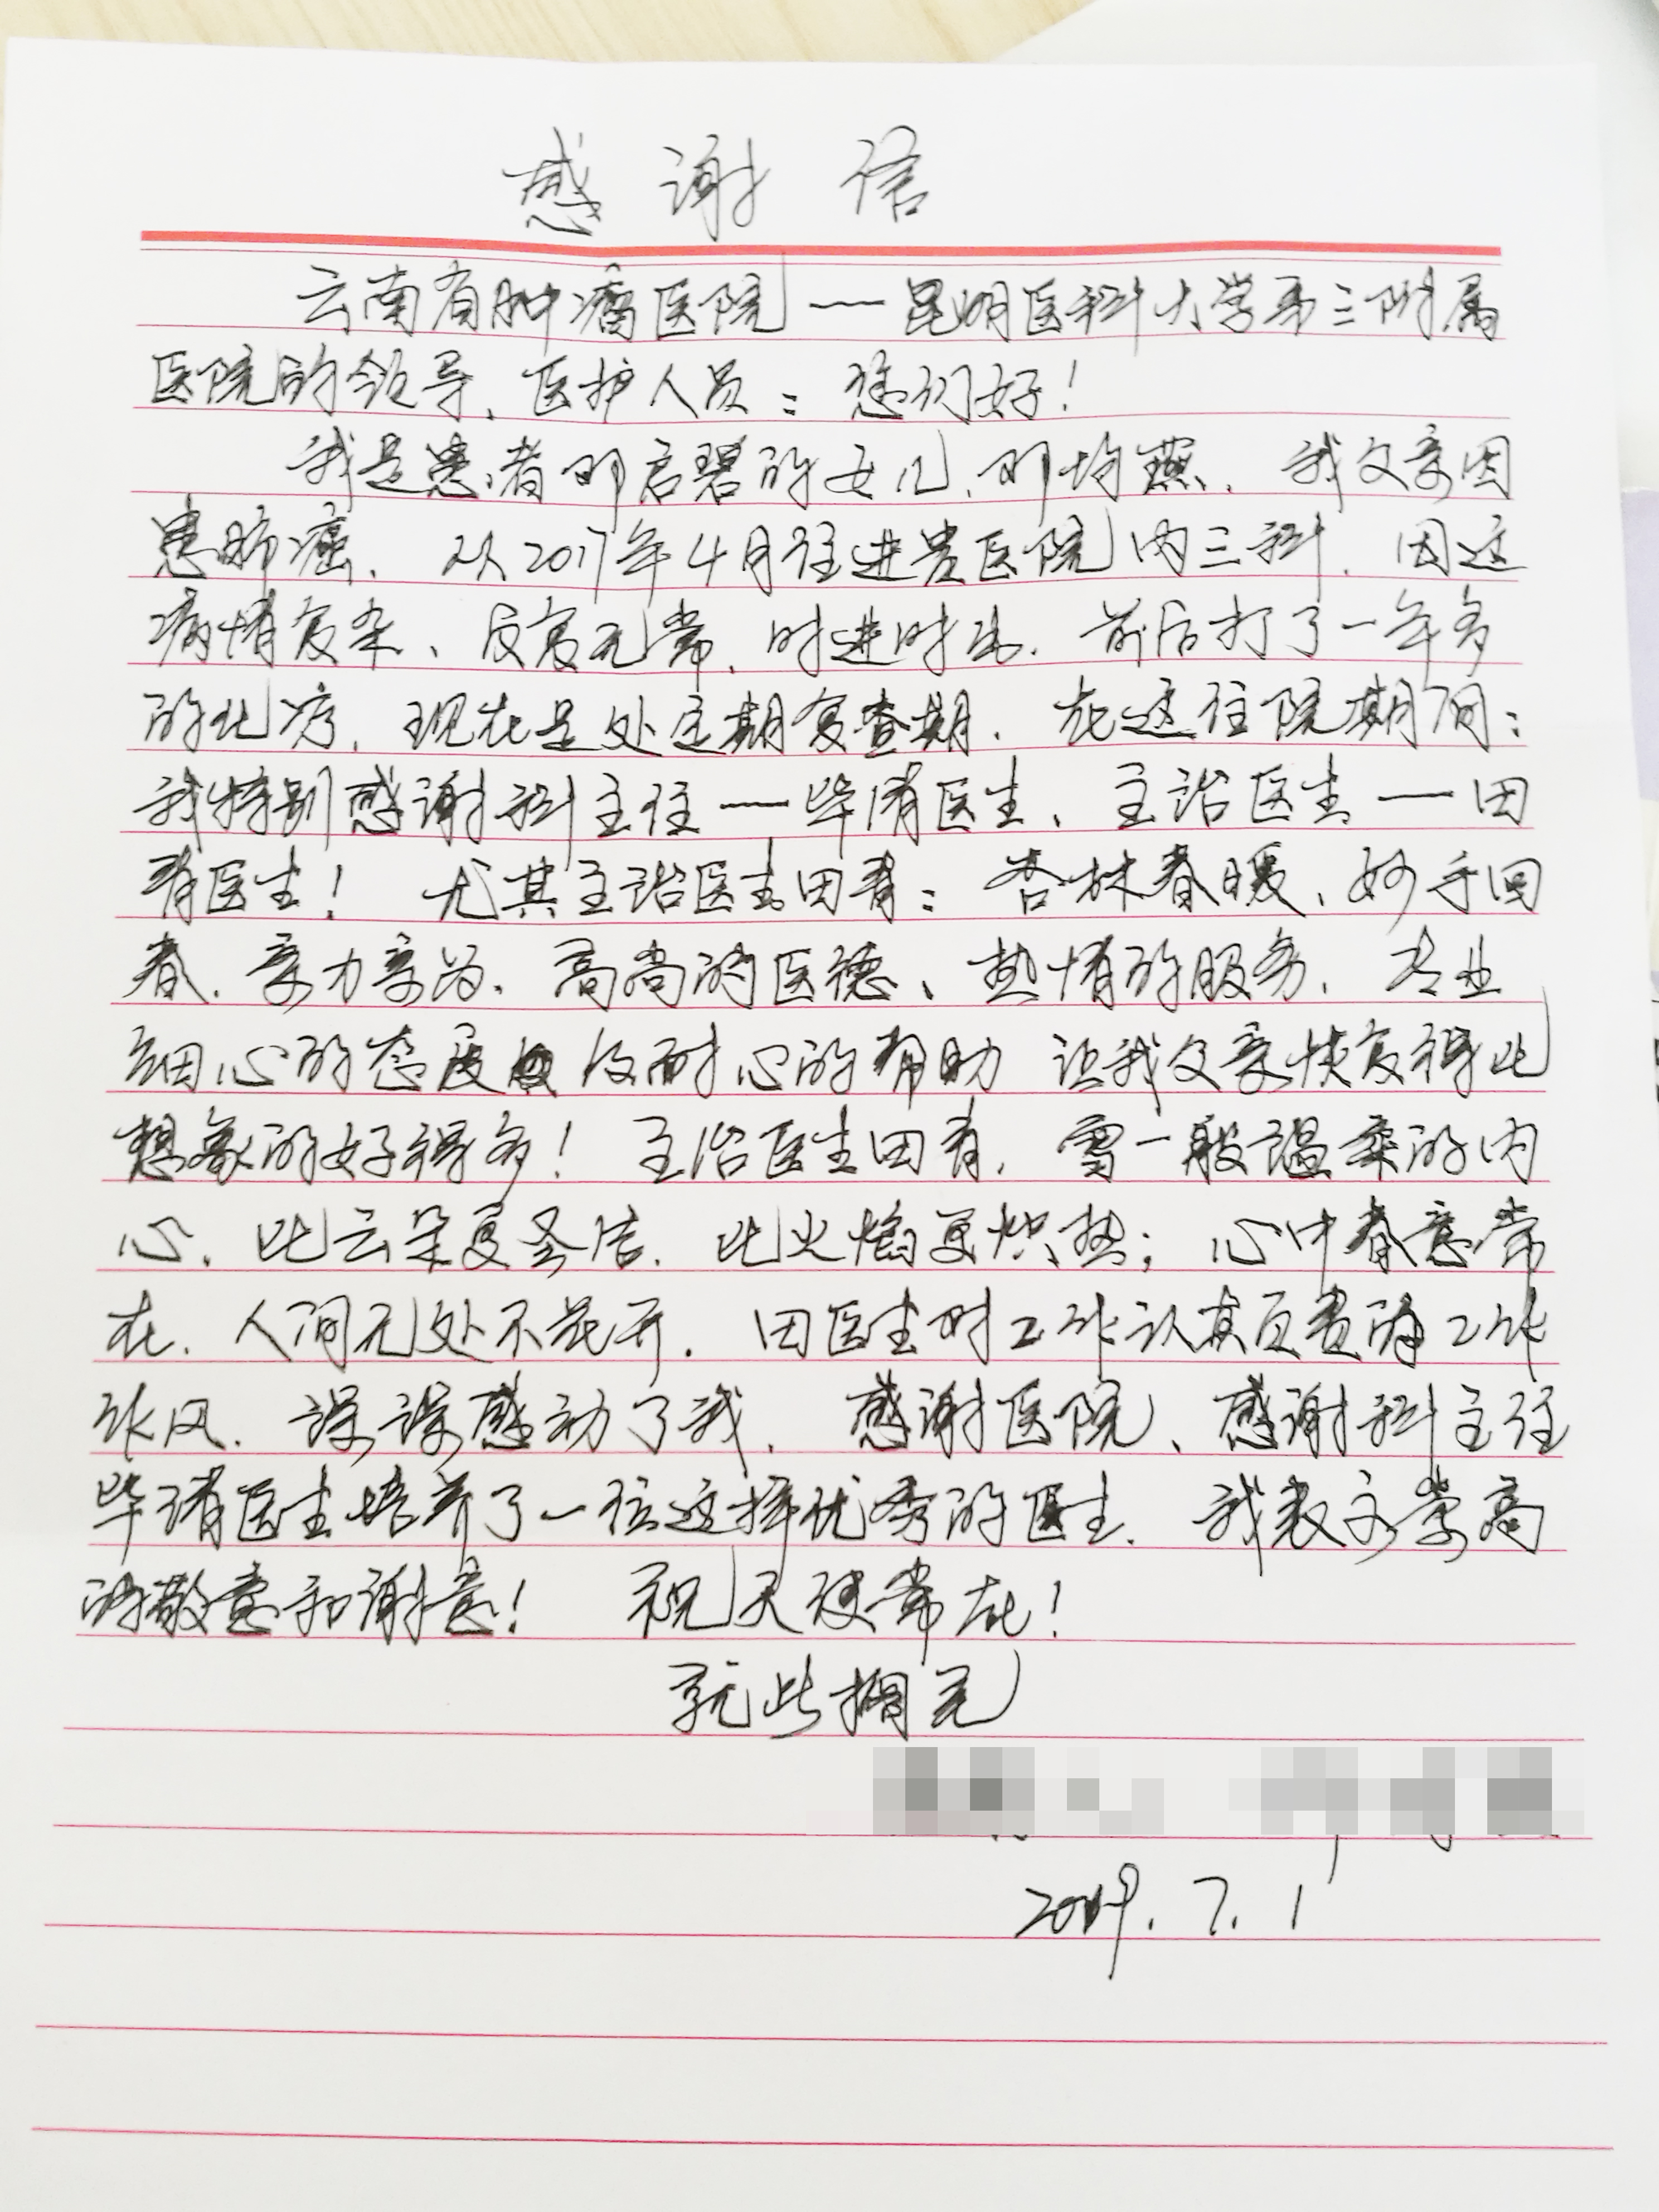 感谢信
云南省肿瘤医院——昆明医科大学第三附属
医院的领导、医护人员：您们好！
我是患者邓启碧的女儿,邓均燕. 我父亲因
患肺癌. 从2017年4月住进贵医院内三科. 因这
病情复杂、反复无常, 时进时出. 前后打了一年多
的化疗, 现在是处定期复查期. 在这住院期间：
我特别感谢科主任——毕清医生、主治医生——田
青医生！ 尤其主治医生田青：杏林春暖、妙手回
春. 亲力亲为. 高尚的医德、热情的服务. 专业
细心的态度 及耐心的帮助 让我父亲恢复得比
想象的好得多！ 主治医生田青, 雪一般温柔的内
心. 比云朵更圣洁. 比火焰更炽热；心中春意常
在. 人间无处不花开. 田医生对工作认真负责的工作
作风. 深深感动了我. 感谢医院、感谢科主任
毕清医生培养了一位这样优秀的医生. 我表示崇高
的敬意和谢意！ 祝天使常在！
就此搁笔
2019. 7. 1